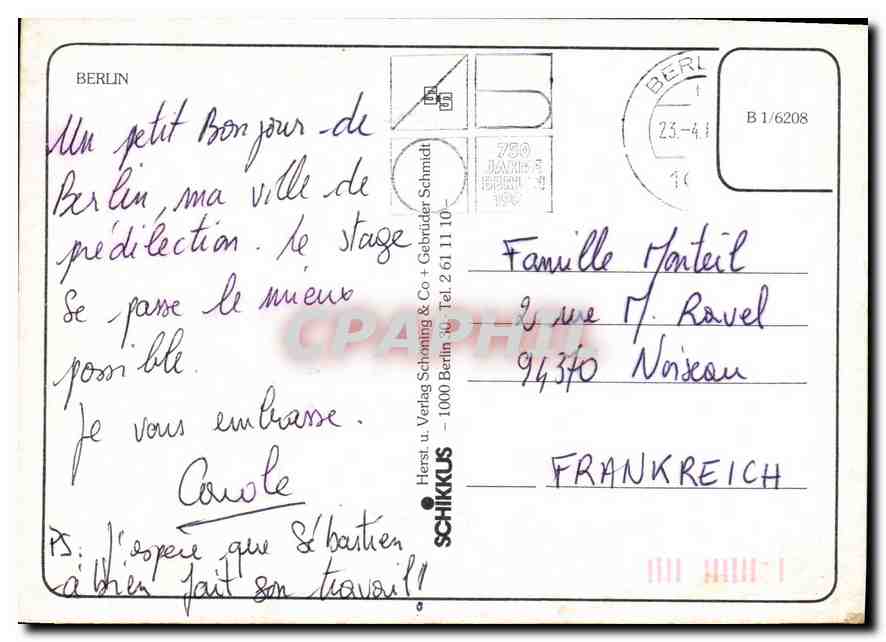 BERLIN
Un petit Bonjour de
Berlin, ma ville de
prédilection. Le stage
se passe le mieux
possible.
Je vous embrasse.
Carole
PS: J'espère que Sébastien
à bien fait son travail!!
Herst. u. Verlag Schöning & Co + Gebrüder Schmidt
– 1000 Berlin 30 – Tel. 2 61 11 10 –
SCHIKKUS
750
JAHRE
BERLIN
198
BERL
23.-4.
10
B 1/6208
Famille Monteil
2 rue M. Ravel
94370 Noiseau
FRANKREICH
CPAPHIL